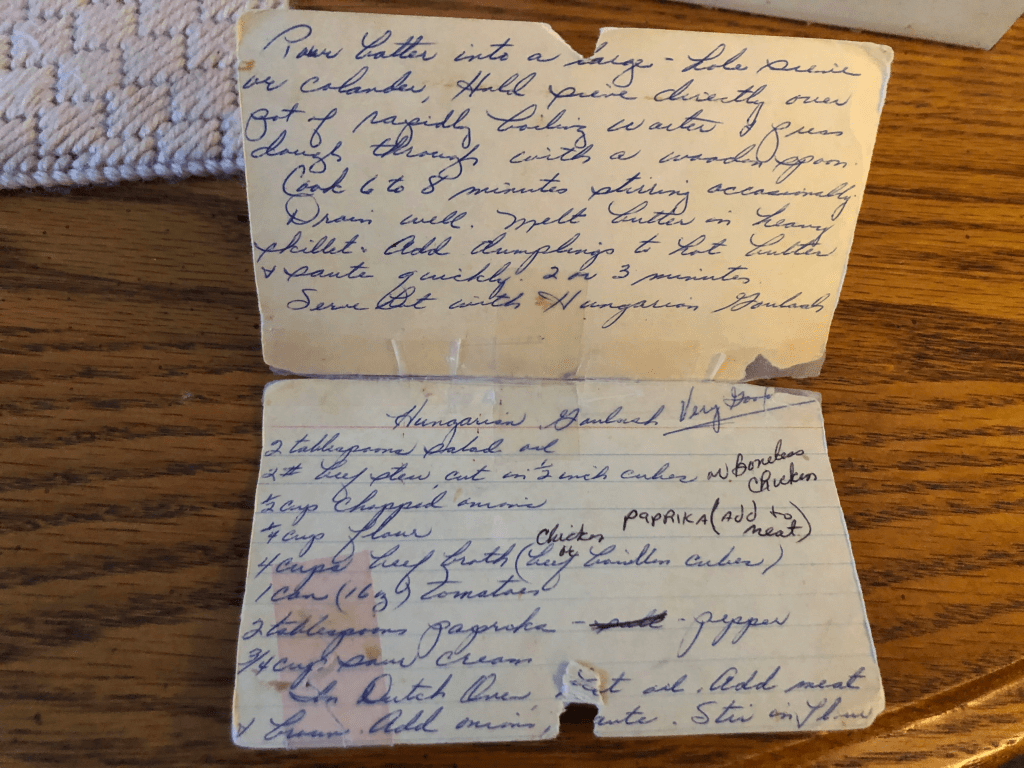 Pour batter into a large-hole sieve
or colander, Hold sieve directly over
pot of rapidly boiling water & press
dough through with a wooden spoon.
Cook 6 to 8 minutes stirring occasionally.
Drain well. Melt butter in heavy
skillet. Add dumplings to hot butter
& saute quickly. 2 or 3 minutes
Serve with Hungarian Goulash
Hungarian Goulash Very Good
2 tablespoons salad oil
2# beef stew, cut in 1/2 inch cubes or Boneless
Chicken
1/2 cup chopped onions
PAPRIKA (add to
meat)
1/4 cup flour
Chicken
or
4 cups beef broth (beef bouillon cubes)
1 can (16 oz) tomatoes
2 tablespoons paprika - - pepper
3/4 cup sour cream
In Dutch Oven, oil. Add meat
& brown. Add onions, Stir in flour